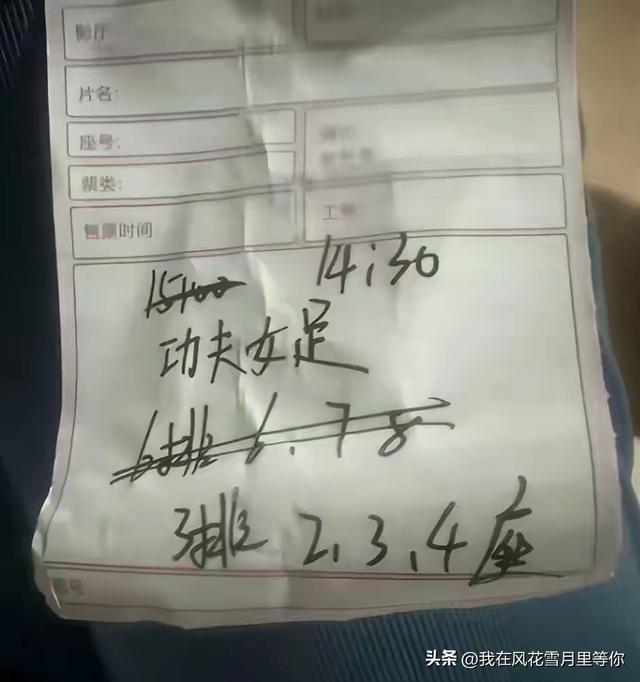 影厅
片名:
座号:
票类:
售票时间
工号
15:00 14:30
功夫女足
6排 6.7 8
3排 2.3.4座
头条 @我在风花雪月里等你